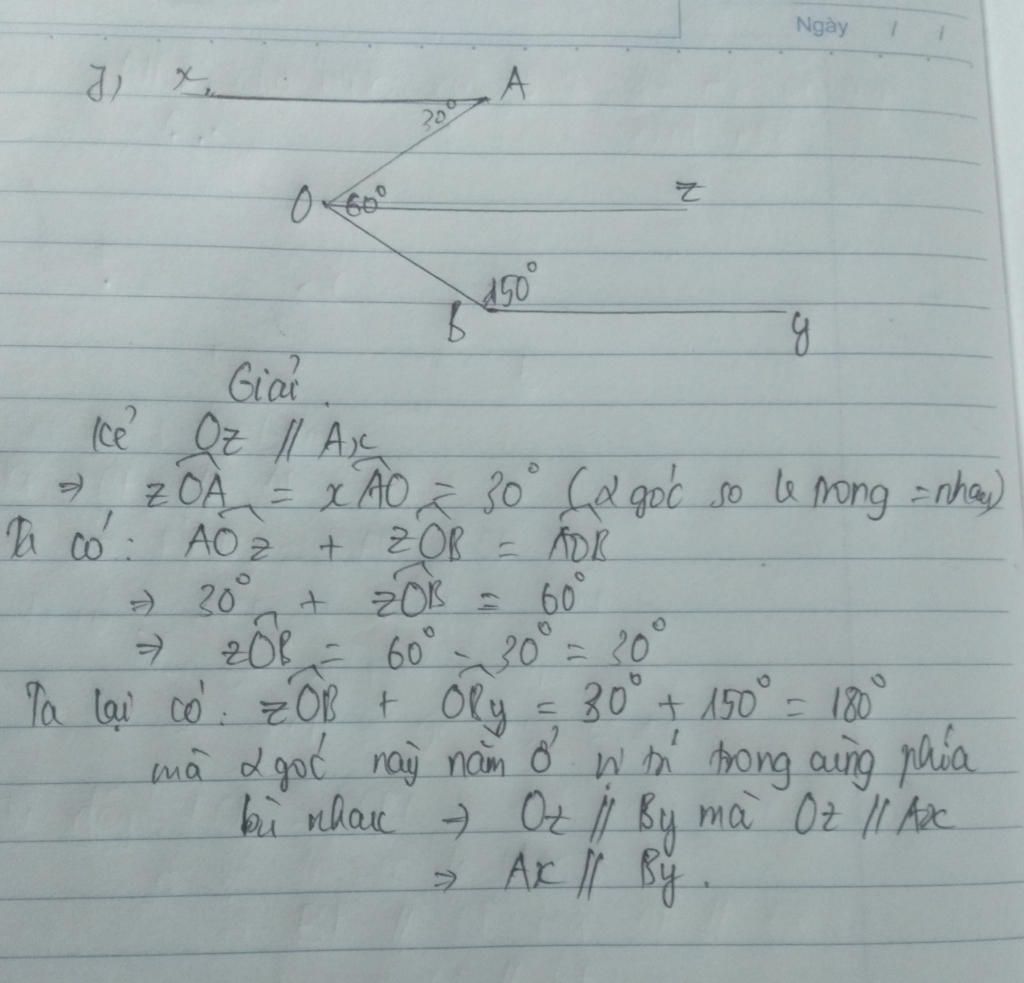 Ngày / /
J) x A
30°
O 60° z
150°
B y
Giải.
Kẻ Oz // Ax
⇒ zOA = xAO = 30° (2 góc so le trong = nhau)
Ta có: AOz + zOB = AOB
⇒ 30° + zOB = 60°
⇒ zOB = 60° - 30° = 30°
Ta lại có: zOB + OBy = 30° + 150° = 180°
mà 2 góc này nằm ở vị trí trong cùng phía
bù nhau → Oz // By mà Oz // Ax
⇒ Ax // By.